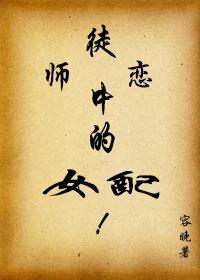 师徒恋
中
的
女配
!
容晚著